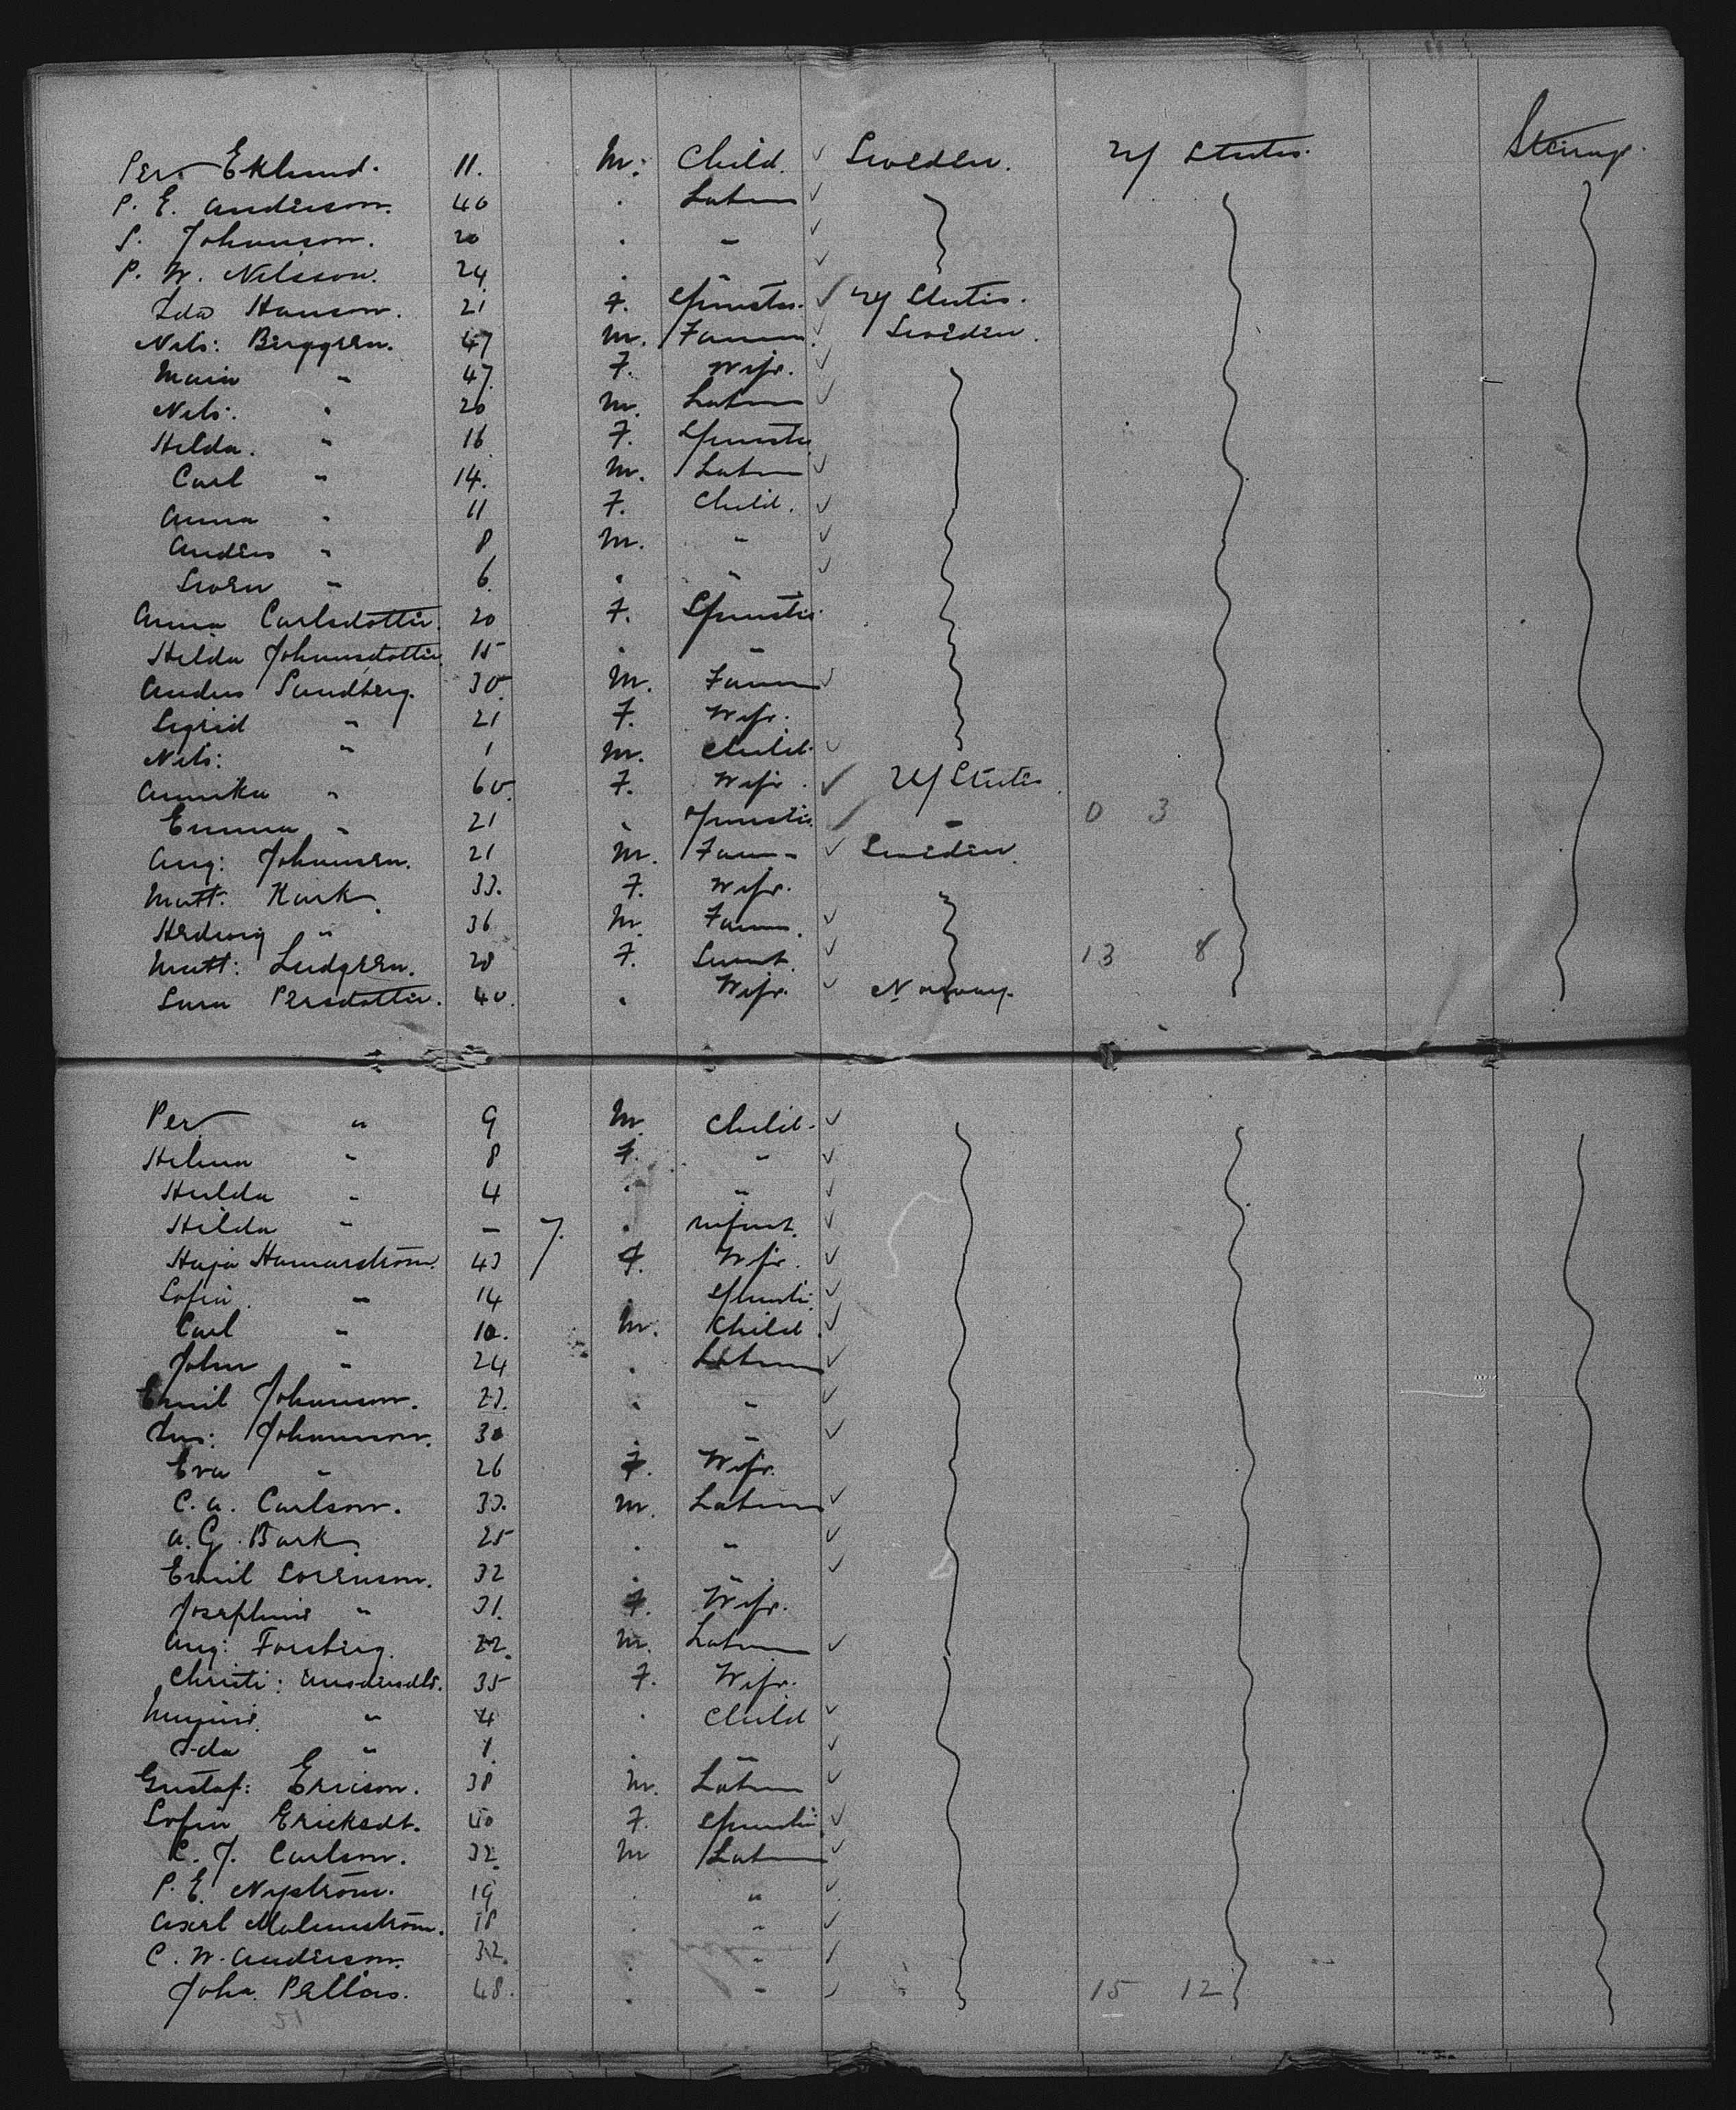 Per Eklund. 11. M. Child. Sweden. U/ States. Steerage.
P. E. Anderson. 40 . Labour
S. Johanson. 20 . "
P. W. Nilsson. 24 . "
Ida Hanson. 21 F. Spinster. U/ States.
Nils: Berggren. 47 M. Farmer. Sweden.
Maria " 47. F. Wife.
Nils. " 20 M. Labour
Hilda. " 16 F. Spinster
Carl " 14. M. Labour
Anna " 11 F. Child.
Anders " 8 M. "
Sven " 6. . "
Anna Carlsdotter. 20 F. Spinster
Hilda Johansdotter. 15 . "
Anders Sundberg. 30. M. Farmer
Sigrid " 21 F. Wife.
Nils: " 1 M. Child.
Annika " 60. F. Wife. U/ States.
Emma " 21 . Spinster. " 0 3
Aug: Johansen. 21 M. Farm- Sweden.
Matt. 33. F. Wife.
Hedwig " 36 M. Farm.
Matt: Lindgren. 28 F. Servt. 13 8
Sara Persdotter. 40. . Wife. Norway.
Per " 9 M. Child.
Helma " 8 F. "
Hulda " 4 . "
Hilda " - 7. . Infant.
Hamarström. 43 F. Wife.
Sofia. " 14 . Spinster.
Carl " 10. M. Child.
John " 24 . Labour
Emil Johanson. 23. . "
Johanson. 30 . "
Eva " 26 F. Wife.
C. A. Carlson. 33. M. Labour
A. G. Bark. 25 . "
Emil Sorenson. 32 . "
Josephine " 31. F. Wife.
Aug: Forsberg. 22. M. Labour
Christi: 35 F. Wife.
" 4 . Child
Ida " 1. . "
Gustaf: Ericson. 38 M. Labour
Sofia Ericksdt. 40 F. Spinster
C. J. Carlson. 32. M Labour
P. E. Nyström. 19 . "
Axel Malmström. 18 . "
C. W. Anderson. 32. . "
John. 48. . " 15 12
51